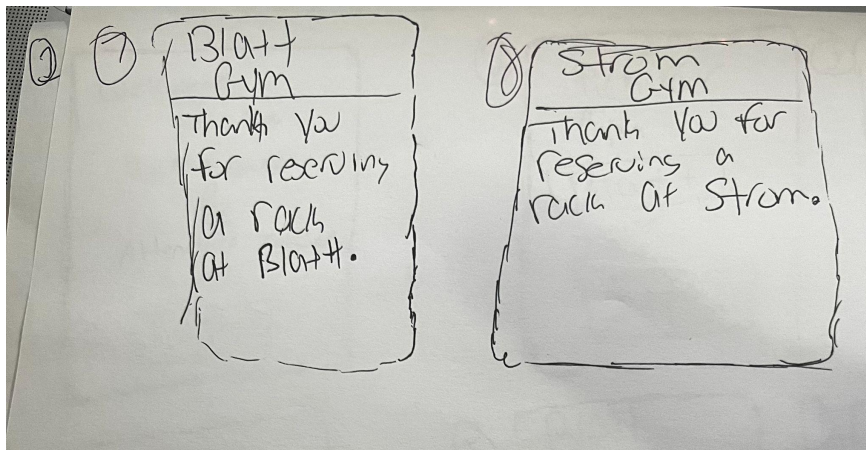 2
7
Blatt
Gym
Thank You
for reserving
a rack
at Blatt.
8
Strom
Gym
Thank You for
reserving a
rack at Strom.